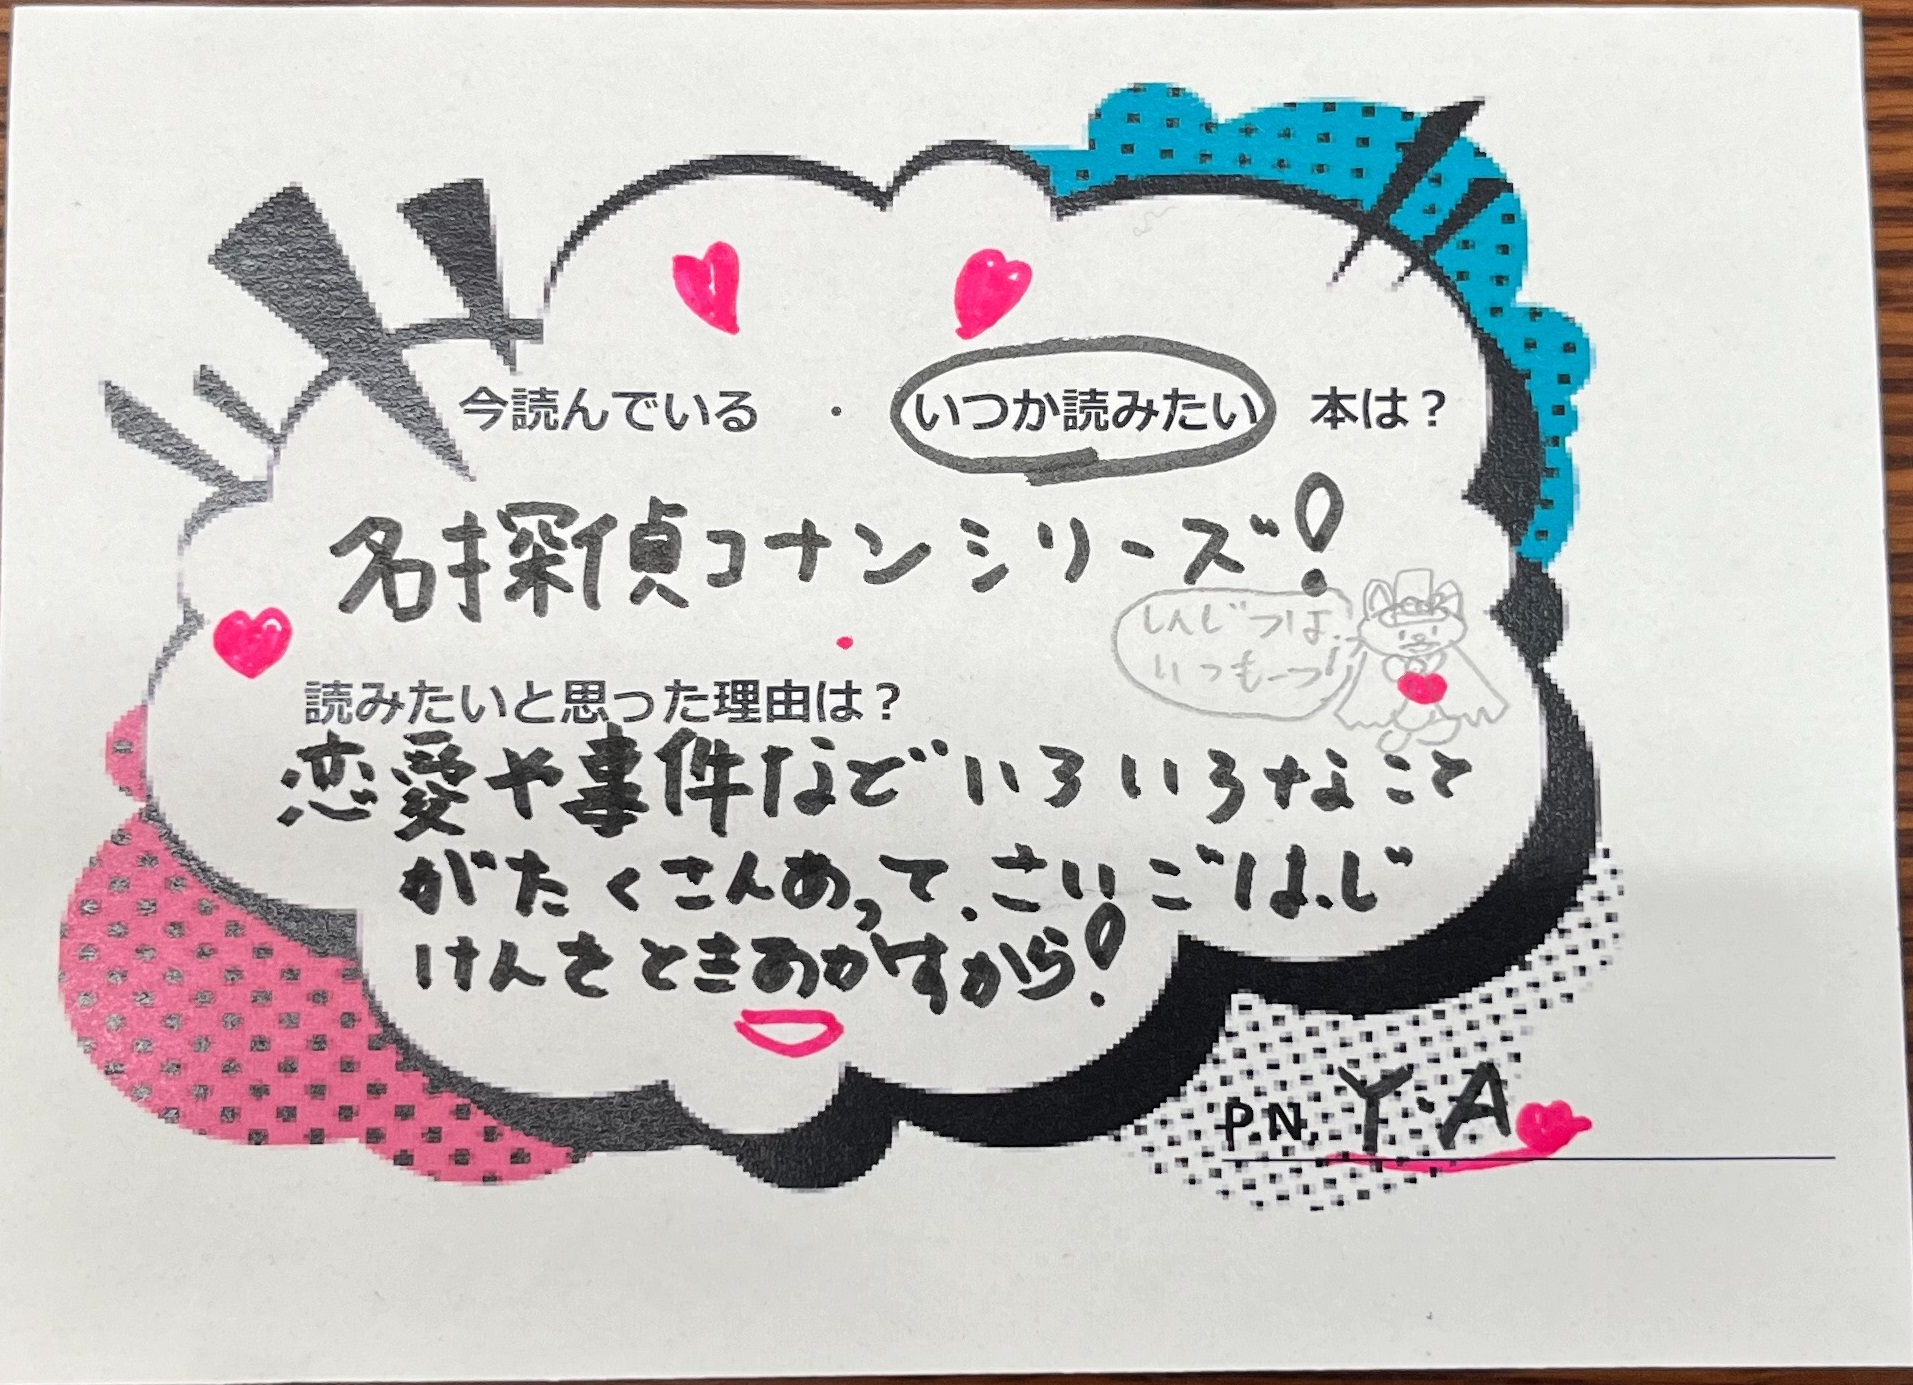 今読んでいる ・ いつか読みたい 本は？
名探偵コナンシリーズ！
しんじつは
いつも一つ!
読みたいと思った理由は？
恋愛や事件などいろいろなこと
がたくさんあって、さいごは、じ
けんをときあかすから！
PN. Y・A